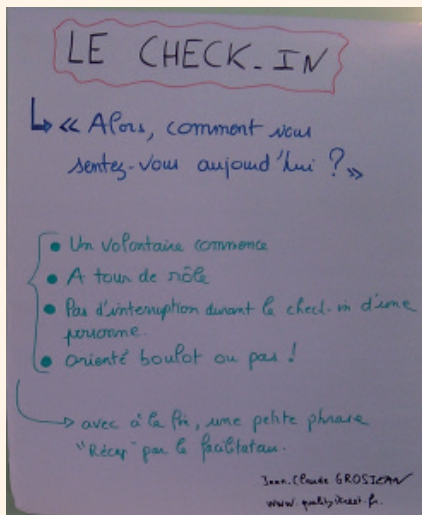 LE CHECK-IN
↳ « Alors, comment vous
sentez-vous aujourd'hui ? »
• Un volontaire commence
• A tour de rôle
• Pas d'interruption durant le check-in d'une
personne.
• orienté boulot ou pas !
→ avec à la fin, une petite phrase
"Récap" par le facilitateur.
Jean-Claude GROSJEAN
www.qualitystreet.fr